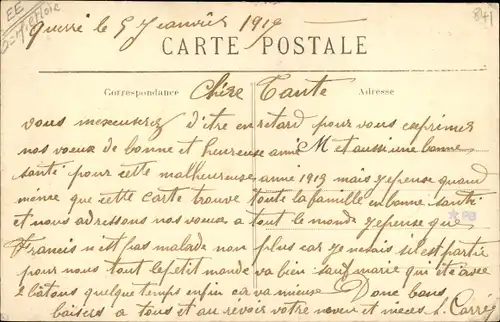 Querré le 5 Janvier 1919
841
CARTE POSTALE
Correspondance
Adresse
Chère Tante
vous mexcuserez d'être en retard pour vous exprimer
nos voeux de bonne et heureuse anné et aussi une bonne
santé pour cette malheureuse anné 1919 mais je pense quand
même que cette carte trouve toute la famille en bonne santé
et nous adressons nos voeux a tout le monde je pense que
Francis n'est pas malade non plus car je
pour nous tout le petit monde va bien sauf marie qui été avec
2 bâtons quelque temps enfin ça va mieux Donc bons
baisers a tous et au revoir votre neveu et nieces L. Carré